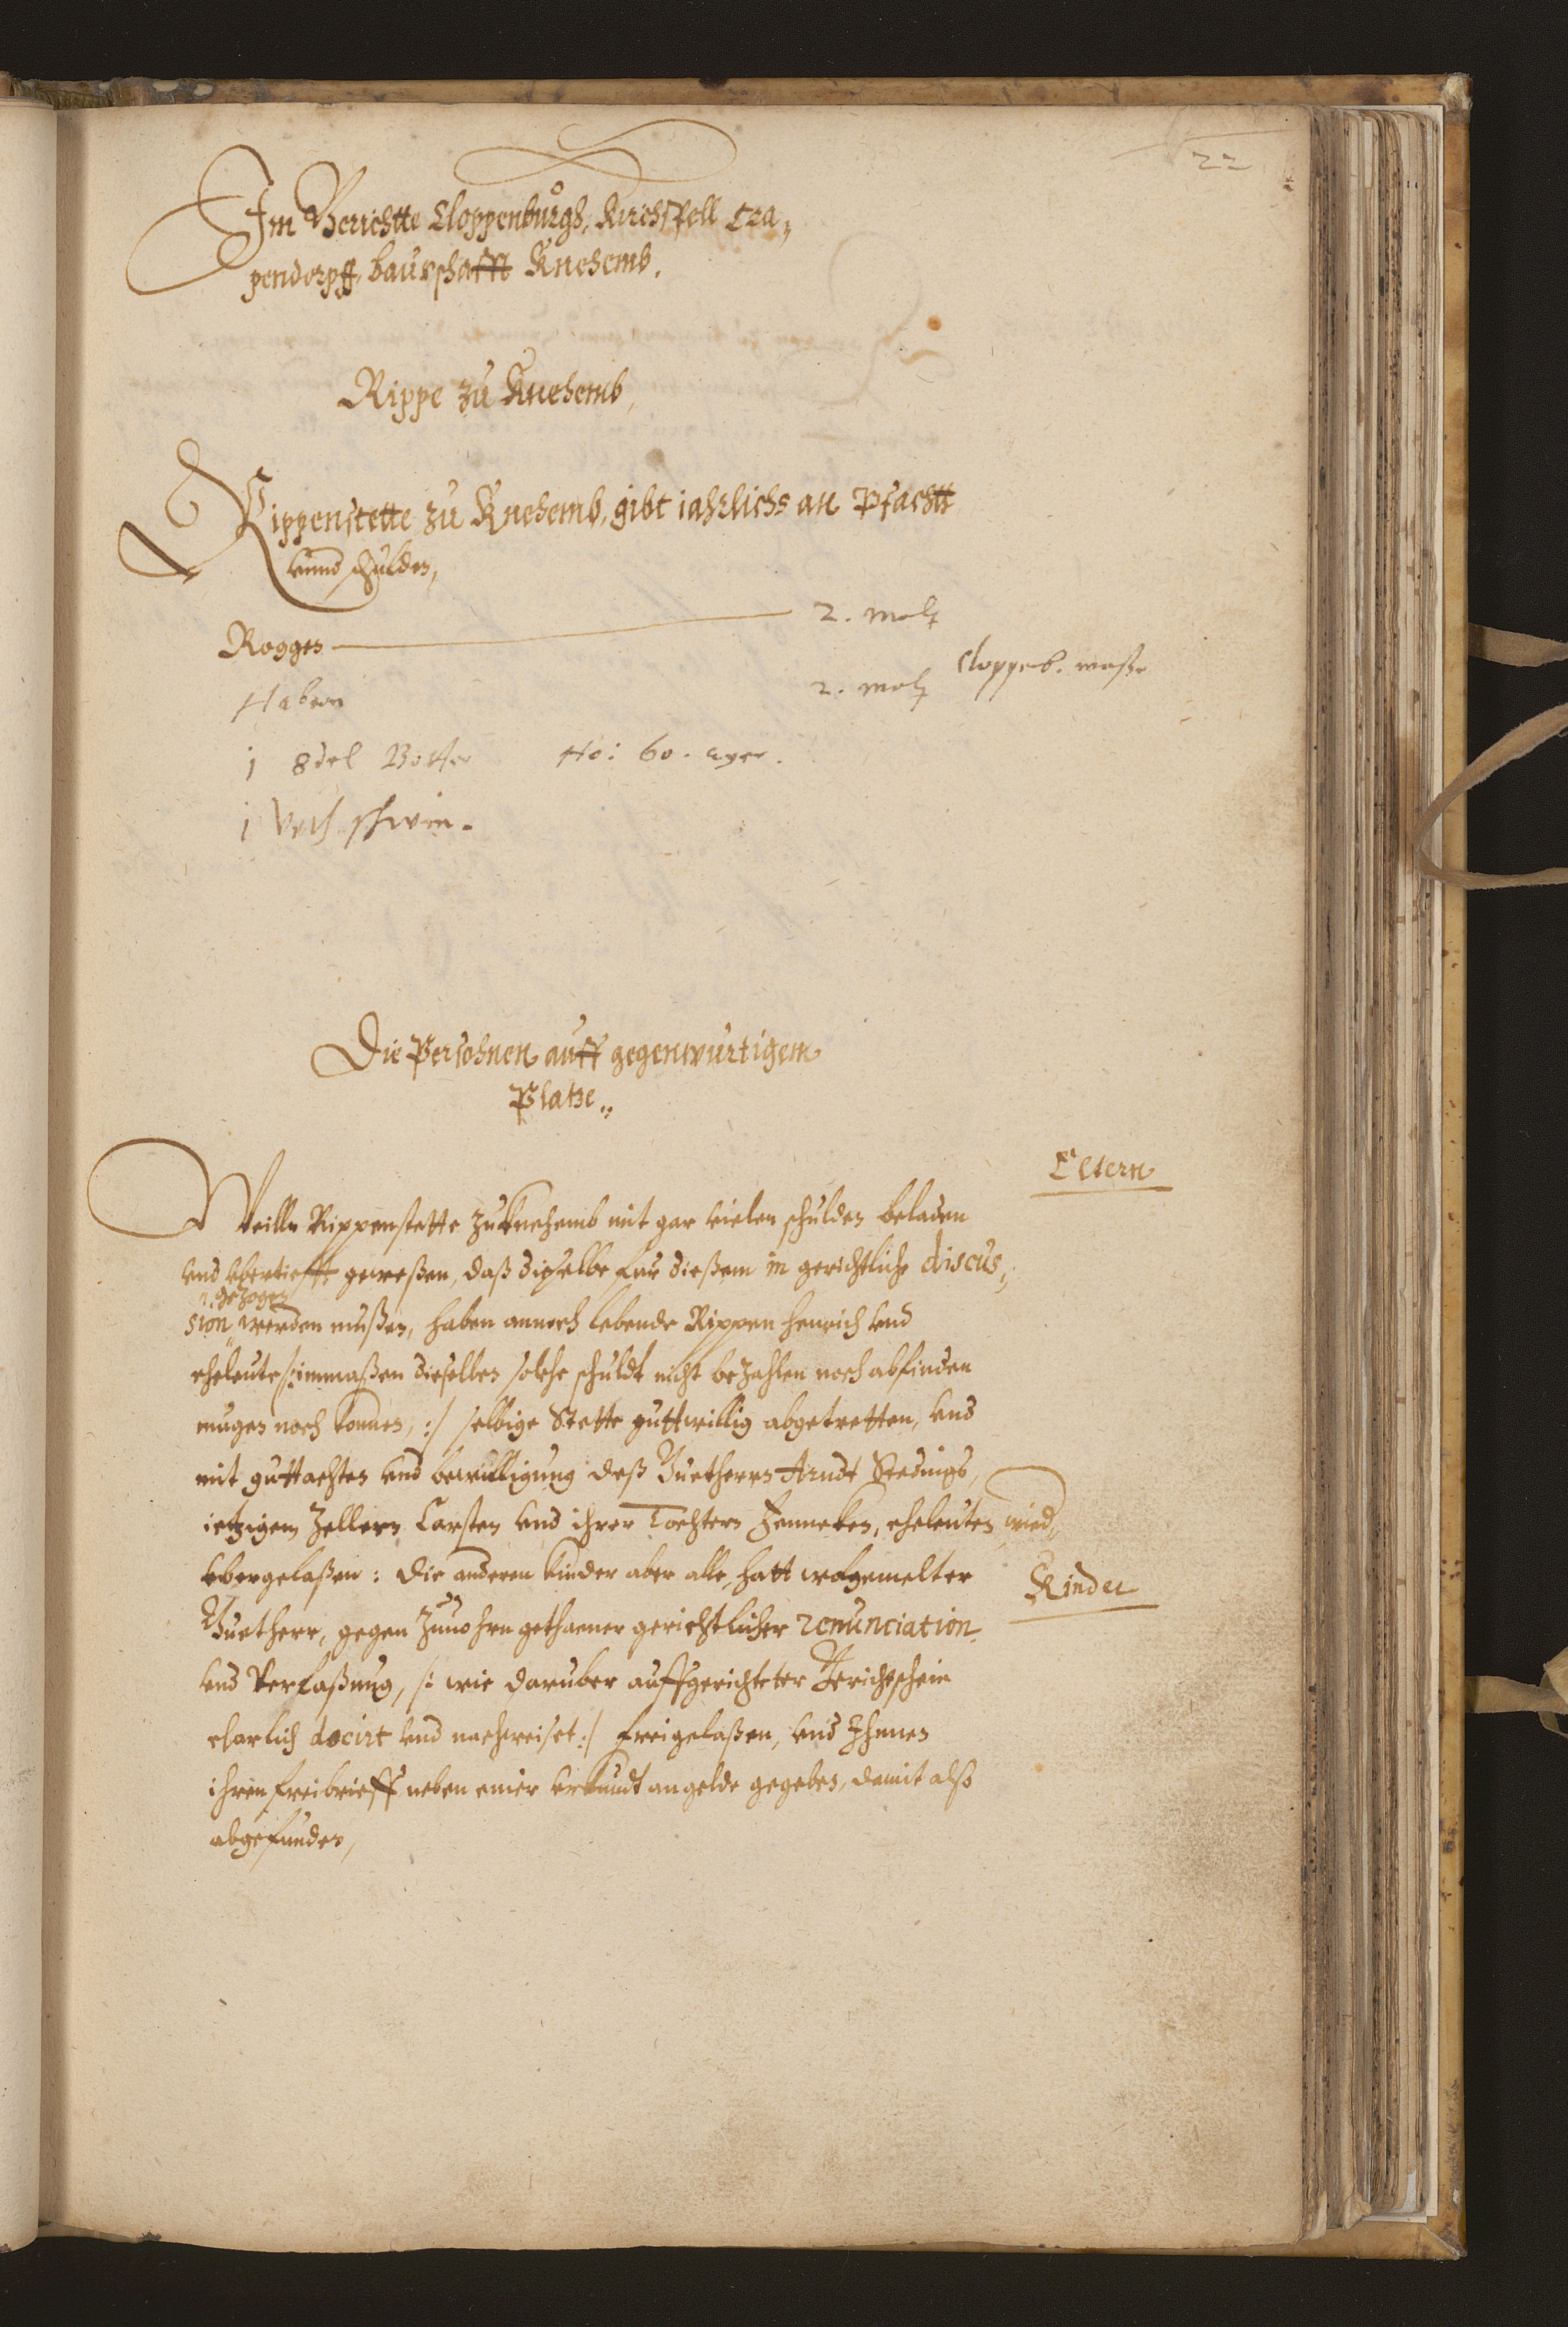 22
Im Gerichtte Cloppenburgh, Kirchspell Cra„
pendorpff, baurschafft Knehemb,
Rippe zu Knehemb,
Rippenstette zu Knehemb, gibt iahrlichs an Pfachtt
vnnd schulden,
Roggen 2. molt
Habern 2. molt Cloppenb. maße
j 8del Botter Ho: 60. eyer.
j schwein.
Die Persohnen auff gegenwurtigem
Platze„
Eltern
Weilln Rippenstette zu Knehemb mit gar vielen schulden beladen
vnd vbertiefft geweßen, daß dieselbe fur dießem in gerichtliche discus„
gezogen
sion werden mußen, haben annoch lebende Rippen Henrich vnd
eheleute /: inmaßen dieselben solche schuldt nicht bezahlen noch abfinden
mugen noch konnen, :/ selbige Stette guttwillig abgetretten, vnd
mit guttachten vnd bewilligung deß Guetherrn Arndt Stedings,
ietzigem Zellern Carsten vnd ihrer Tochtern Jenneken, eheleuten wied„
vbergelaßen: die anderen kinder aber alle hatt wolgemelter
Kinder
Guetherr, gegen Zuuohrn gethaener gerichtlicher renunciation
vnd Verlaßung, /: wie daruber auffgerichteter Gerichtschein
clarlich docirt vnd nachweiset :/ freigelaßen, vnd Ihnnen
ihren freibrieff neben einer vrkundt an gelde gegeben, damit alß
abgefunden,